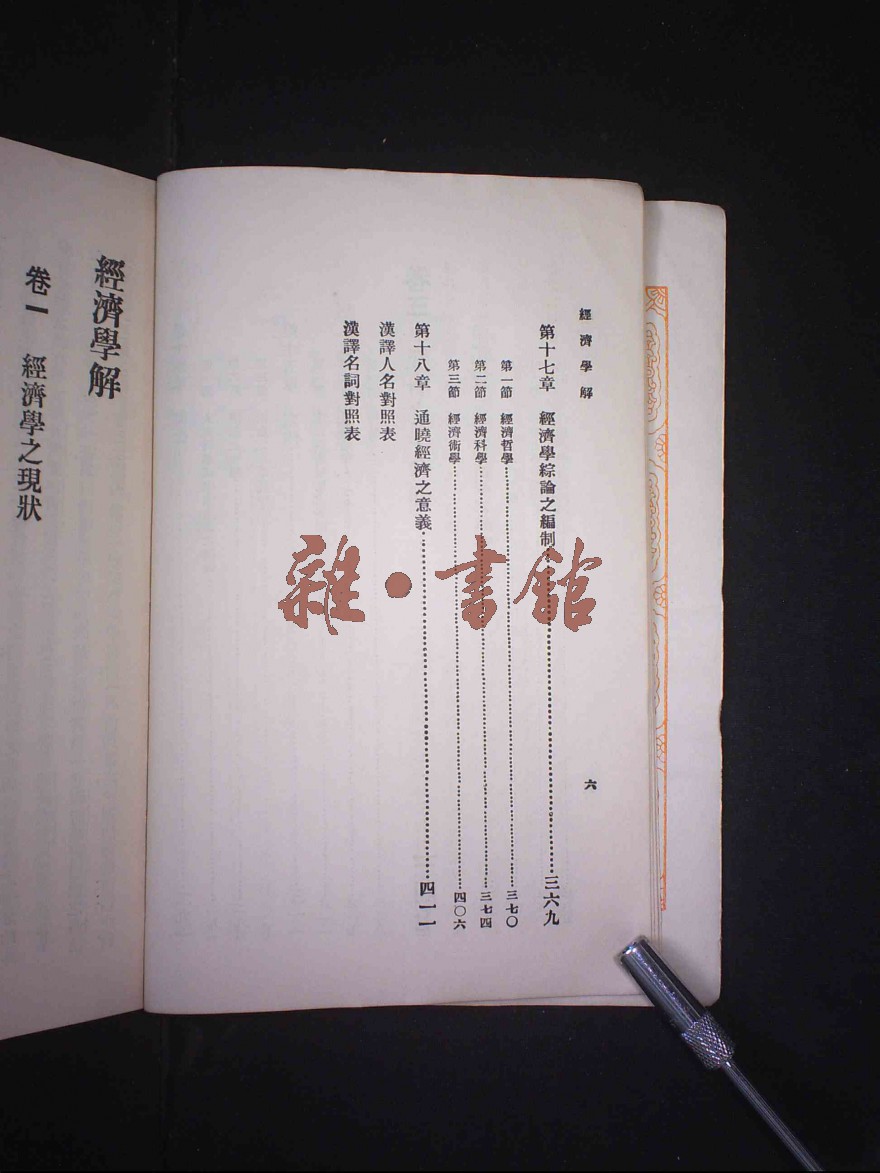 經濟學解
第十七章　經濟學綜論之編制……三六九
第一節　經濟哲學……三七〇
第二節　經濟科學……三七四
第三節　經濟術學……四〇六
第十八章　通曉經濟之意義……四一一
漢譯人名對照表
漢譯名詞對照表
六
經濟學解
卷一　經濟學之現狀
雜·書館